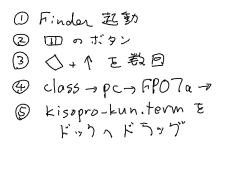 ① Finder 起動
② のボタン
③ ◇ + ↑ を数回
④ class → pc → FP07a →
⑤ kisopro-kun.term を
ドックへドラッグ